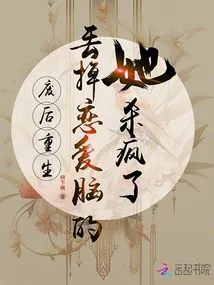 废后重生
丢掉恋爱脑的
她杀疯了
云起书院